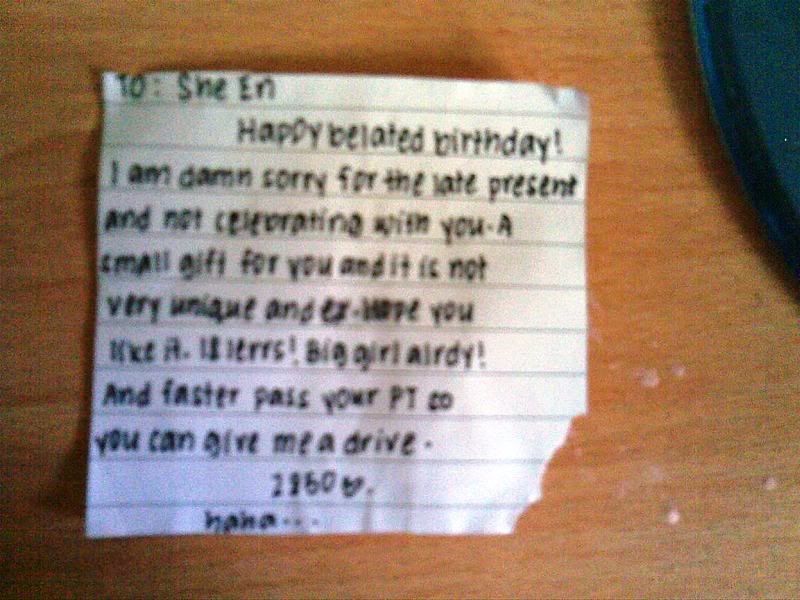 TO: She En
Happy belated birthday!
I am damn sorry for the late present
and not celebrating with you. A
small gift for you and it is not
very unique and ex. Hope you
like it. 18 lerrs! Big girl alrdy!
And faster pass your PT so
you can give me a drive.
haha...